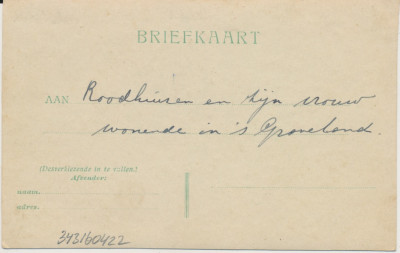 BRIEFKAART
AAN Roodhuisen en zijn vrouw
wonende in 's Graveland.
(Desverkiezende in te vullen.)
Afzender:
naam
adres
343160422